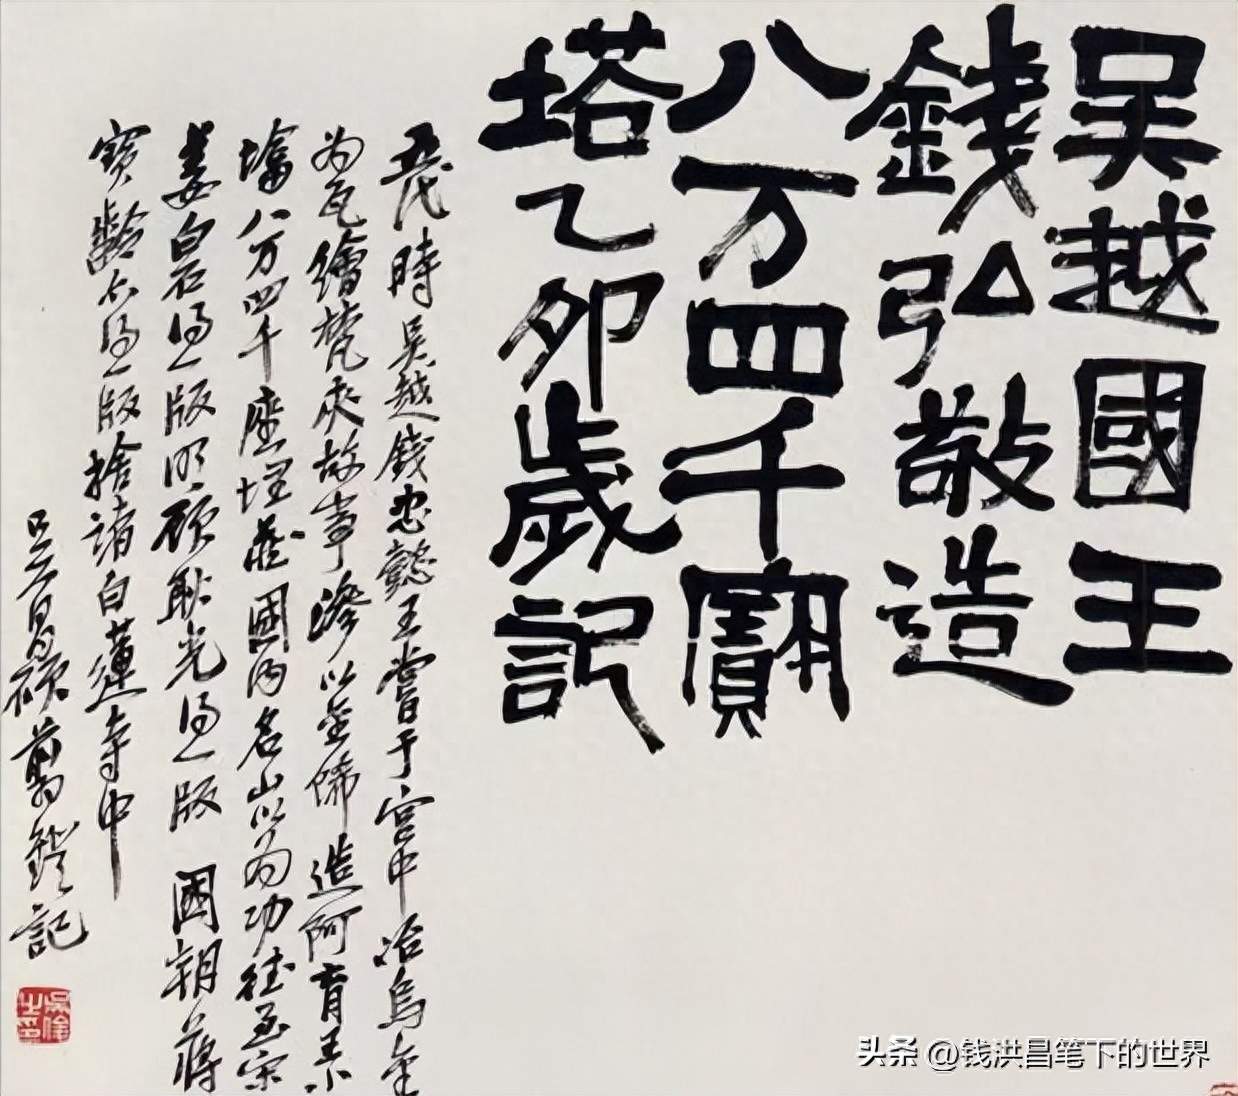 吴越國王
錢弘敬造
八万四千寶
塔乙卯歲記
五代時吴越錢忠懿王嘗于宫中冶烏金
为瓦繪梵夾故事滲以金飾造阿育王
塔八万四千座埋藏國内名山以为功德至宋
姜白石得一版明顧耿光得一版國朝蔣
寶齡亦得一版捨諸白蓮寺中
吴昌碩剪鐙記
头条 @钱洪昌笔下的世界